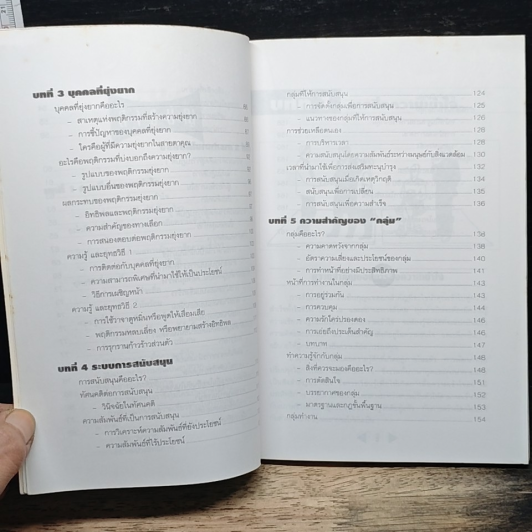 บทที่ 3 บุคคลที่ยุ่งยาก
บุคคลที่ยุ่งยากคืออะไร
- สาเหตุแห่งพฤติกรรมที่สร้างความยุ่งยาก
- การชี้ปัญหาของบุคคลที่ยุ่งยาก
- ใครคือผู้ที่มีความยุ่งยากในสายตาคุณ
อะไรคือพฤติกรรมที่บ่งบอกถึงความยุ่งยาก?
- รูปแบบของพฤติกรรมยุ่งยาก
- รูปแบบอื่นของพฤติกรรมยุ่งยาก
ผลกระทบของพฤติกรรมยุ่งยาก
- อิทธิพลและพฤติกรรมยุ่งยาก
- ความสำคัญของทางเลือก
- การสนองตอบต่อพฤติกรรมยุ่งยาก
ความรู้ และยุทธวิธี 1
- การติดต่อกับบุคคลที่ยุ่งยาก
- ความสามารถพิเศษที่นำมาใช้ให้เป็นประโยชน์
- วิธีการเผชิญหน้า
ความรู้ และยุทธวิธี 2
- การใช้วาจาดูหมิ่นหรือพูดให้เสื่อมเสีย
- พฤติกรรมหลบเลี่ยง หรือพยายามสร้างอิทธิพล
- การรุกรานก้าวร้าวส่วนตัว
บทที่ 4 ระบบการสนับสนุน
การสนับสนุนคืออะไร?
ทัศนคติต่อการสนับสนุน
- วินิจฉัยในทัศนคติ
ความสัมพันธ์ที่เป็นการสนับสนุน
- การวิเคราะห์ความสัมพันธ์ที่ยังประโยชน์
- ความสัมพันธ์ที่ไร้ประโยชน์
กลุ่มที่ให้การสนับสนุน 124
- การจัดตั้งกลุ่มเพื่อการสนับสนุน 125
- แนวทางของกลุ่มที่ให้การสนับสนุน 126
การช่วยเหลือตนเอง 128
- การบริหารเวลา 128
- ความสนับสนุนโดยความสัมพันธ์ระหว่างมนุษย์กับสิ่งแวดล้อม 130
เวลาที่นำมาใช้เพื่อการส่งเสริมทะนุบำรุง 132
- การสนับสนุนเมื่อเกิดเหตุวิกฤติ 134
- สนับสนุนเพื่อการเปลี่ยน 135
- การสนับสนุนเพื่อความสำเร็จ 136
บทที่ 5 ความสำคัญของ "กลุ่ม"
กลุ่มคืออะไร? 138
- ความคาดหวังจากกลุ่ม 138
- อัตราความเสี่ยงและประโยชน์ของกลุ่ม 140
- การทำหน้าที่อย่างมีประสิทธิภาพ 141
หน้าที่การทำงานในกลุ่ม 143
- การอยู่รวมกัน 143
- การควบคุม 144
- ความรักใคร่ปรองดอง 144
- การเอยถึงประเด็นสำคัญ 145
- บทบาท 146
ทำความรู้จักกับกลุ่ม 148
- สิ่งที่ควรจะมองคืออะไร? 148
- การตัดสินใจ 151
- บรรยากาศของกลุ่ม 152
- มาตรฐานและกฎขั้นพื้นฐาน 153
กลุ่มทำงาน 154